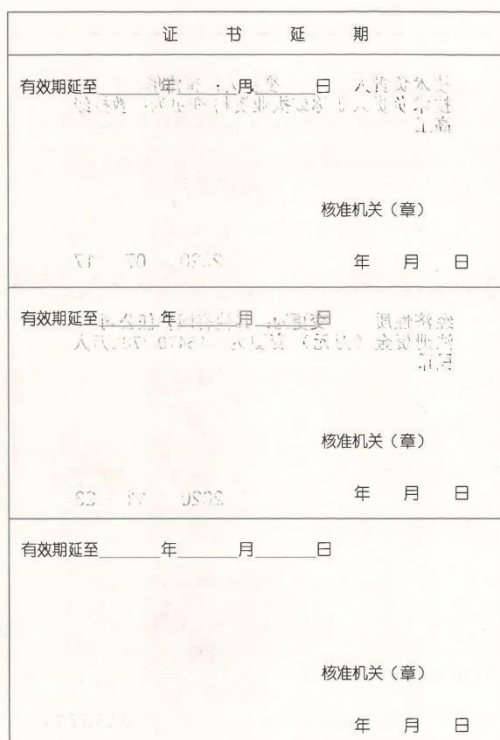 证 书 延 期
有效期延至______年______月______日
核准机关（章）
年 月 日
有效期延至______年______月______日
核准机关（章）
年 月 日
有效期延至______年______月______日
核准机关（章）
年 月 日